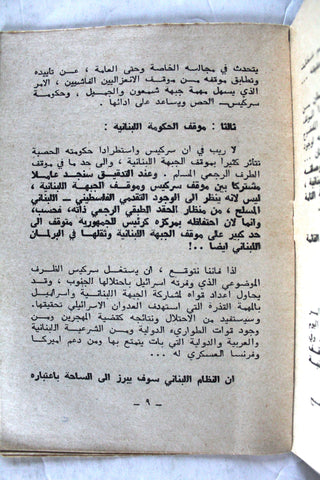 يتحدث في مجالسه الخاصة وحتى العامة ، عن تأييده
وتطابق موقفه من موقف الانعزاليين الفاشيين ، الامر
الذي يسهل مهمة جبهة شمعون والجميل ، وحكومة
سركيس ـ الحص ويساعد على ادائها .
ثالثا : موقف الحكومة اللبنانية :
لا ريب في ان سركيس واستطرادا حكومته الحصية
تتأثر كثيرا بموقف الجبهة اللبنانية ، والى حد ما في موقف
الطرف الرجعي المسلم . وعند التدقيق سنجد عاملا
مشتركا بين موقف سركيس وموقف الجبهة اللبنانية ،
ليس لانه ينظر الى الوجود التقدمي الفلسطيني ـ اللبناني
المسلح ، من منظار الحقد الطبقي الرجعي ذاته، فحسب،
وانما لان احتفاظه بمركزه كرئيس للجمهورية متوقف الى
حد كبير على موقف الجبهة اللبنانية وثقلها في البرلمان
اللبناني ايضا ..!
لذا فاننا نتوقع ، ان يستغل سركيس الظرف
الموضوعي الذي وفرته اسرائيل باحتلالها الجنوب ، وقد
يحاول اعداد قواه لمشاركة الجبهة اللبنانية واسرائيل
بالمهمة القذرة التي استهدف العدوان الاسرائيلي تحقيقها
وسيستفيد من الاحتلال ونتائجه كقضية المهجرين ومن
وجود قوات الطوارىء الدولية ومن الشرعية اللبنانية
والعربية والدولية التي بات يتمتع بها ومن دعم اميركا
وفرنسا العسكري له .
ان النظام اللبناني سوف يبرز الى الساحة باعتباره
ـ ٩ ـ